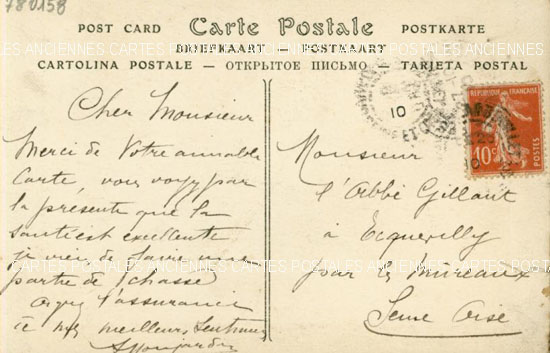 780158
POST CARD Carte Postale POSTKARTE
BRIEFKAART — POSTKAART
CARTES POSTALES ANCIENNES CARTES POSTALES ANCIENNES
CARTOLINA POSTALE — ОТКРЫТОЕ ПИСЬМО — TARJETA POSTAL
Cher Monsieur
Merci de Votre aimable
Carte, vous voyez par
la présente que la
santé est excellente
je viens de faire une
partie de chasse
l'assurance
meilleurs
RÉPUBLIQUE FRANÇAISE
10c
POSTES
10
Monsieur
l'Abbé Gillant
à Ecquevilly
par les Mureaux
Seine Oise
CARTES POSTALES ANCIENNES CARTES POSTALES ANCIENNES